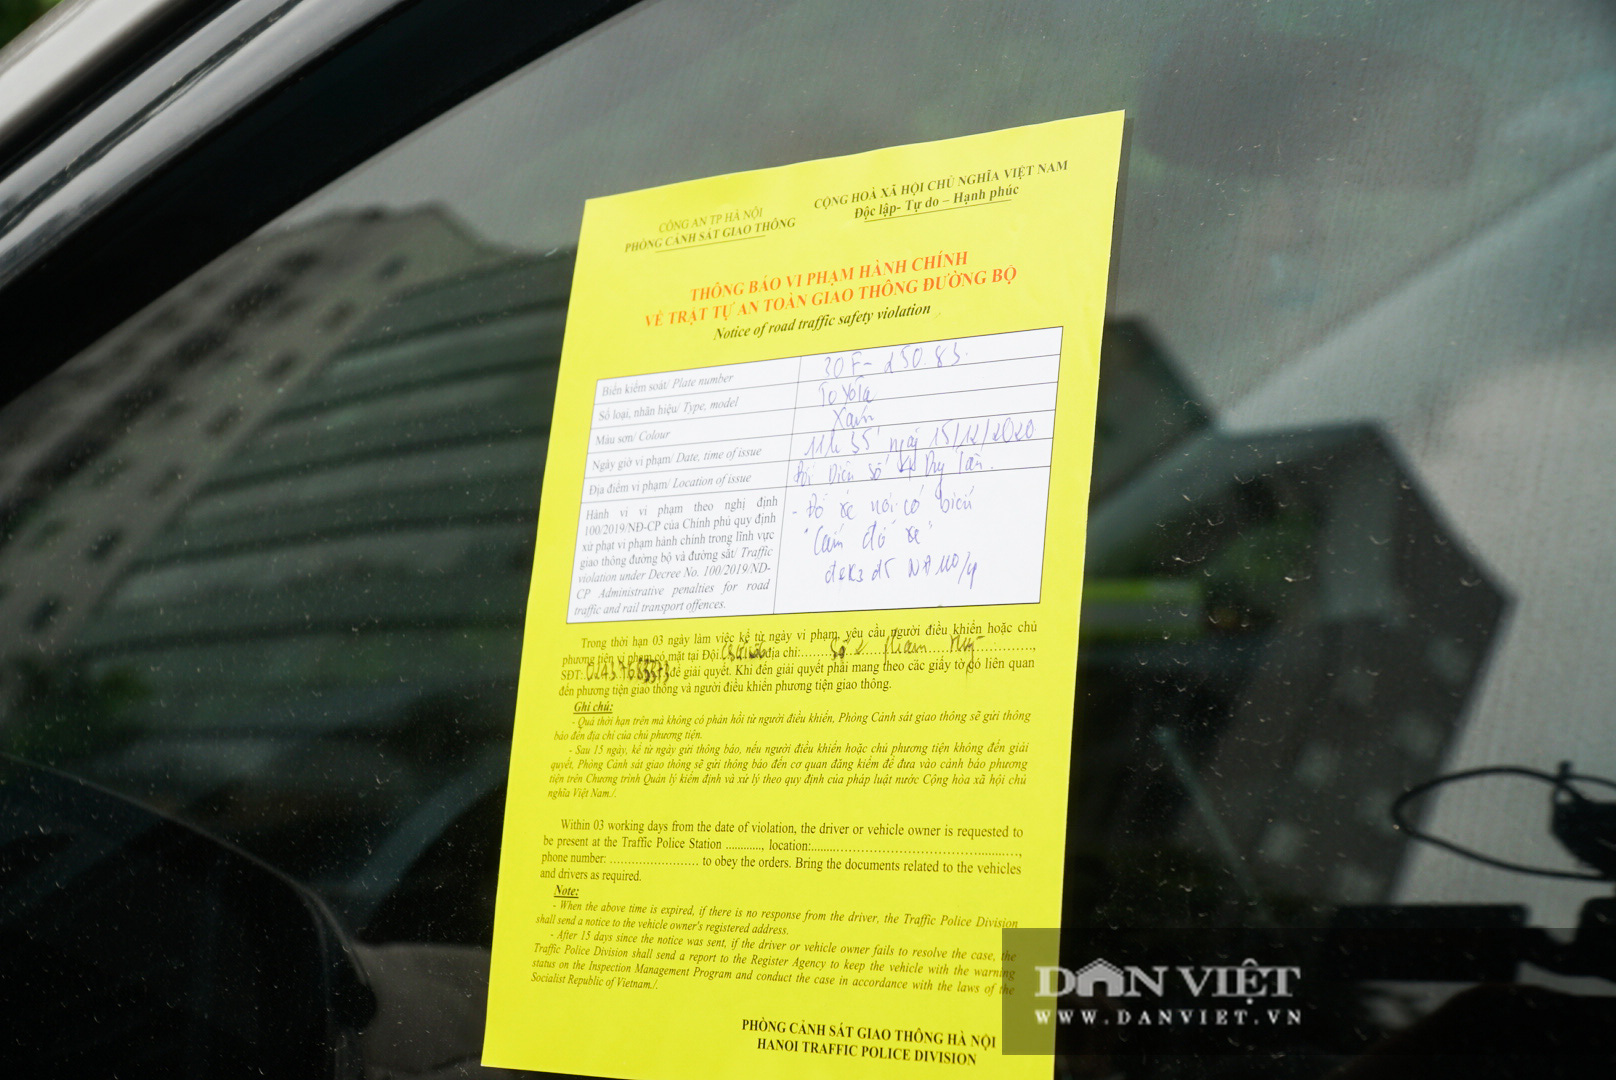 CÔNG AN TP HÀ NỘI
PHÒNG CẢNH SÁT GIAO THÔNG
CỘNG HOÀ XÃ HỘI CHỦ NGHĨA VIỆT NAM
Độc lập- Tự do – Hạnh phúc
THÔNG BÁO VI PHẠM HÀNH CHÍNH
VỀ TRẬT TỰ AN TOÀN GIAO THÔNG ĐƯỜNG BỘ
Notice of road traffic safety violation
Biển kiểm soát/ Plate number
30F- 250.83
Số loại, nhãn hiệu/ Type, model
Toyota
Màu sơn/ Colour
Xanh
Ngày giờ vi phạm/ Date, time of issue
11h 35' ngày 15/12/2020
Địa điểm vi phạm/ Location of issue
Đối Diện số 4 Duy Tân.
Hành vi vi phạm theo nghị định
100/2019/NĐ-CP của Chính phủ quy định
xử phạt vi phạm hành chính trong lĩnh vực
giao thông đường bộ và đường sắt/ Traffic
violation under Decree No. 100/2019/NĐ-
CP Administrative penalties for road
traffic and rail transport offences.
- Đỗ xe nơi có biển
"Cấm đỗ xe"
Trong thời hạn 03 ngày làm việc kể từ ngày vi phạm, yêu cầu người điều khiển hoặc chủ
phương tiện vi phạm có mặt tại Đội địa chỉ: Số 2
SĐT: để giải quyết. Khi đến giải quyết phải mang theo các giấy tờ có liên quan
đến phương tiện giao thông và người điều khiển phương tiện giao thông.
Ghi chú:
- Quá thời hạn trên mà không có phản hồi từ người điều khiển, Phòng Cảnh sát giao thông sẽ gửi thông
báo đến địa chỉ của chủ phương tiện.
- Sau 15 ngày, kể từ ngày gửi thông báo, nếu người điều khiển hoặc chủ phương tiện không đến giải
quyết, Phòng Cảnh sát giao thông sẽ gửi thông báo đến cơ quan đăng kiểm để đưa vào cảnh báo phương
tiện trên Chương trình Quản lý kiểm định và xử lý theo quy định của pháp luật nước Cộng hòa xã hội chủ
nghĩa Việt Nam./.
Within 03 working days from the date of violation, the driver or vehicle owner is requested to
be present at the Traffic Police Station ............, location:..................................................,
phone number: ........................ to obey the orders. Bring the documents related to the vehicles
and drivers as required.
Note:
- When the above time is expired, if there is no response from the driver, the Traffic Police Division
shall send a notice to the vehicle owner's registered address.
- After 15 days since the notice was sent, if the driver or vehicle owner fails to resolve the case, the
Traffic Police Division shall send a report to the Register Agency to keep the vehicle with the warning
status on the Inspection Management Program and conduct the case in accordance with the laws of the
Socialist Republic of Vietnam./.
PHÒNG CẢNH SÁT GIAO THÔNG HÀ NỘI
HANOI TRAFFIC POLICE DIVISION
DÂN VIỆT
WWW.DANVIET.VN